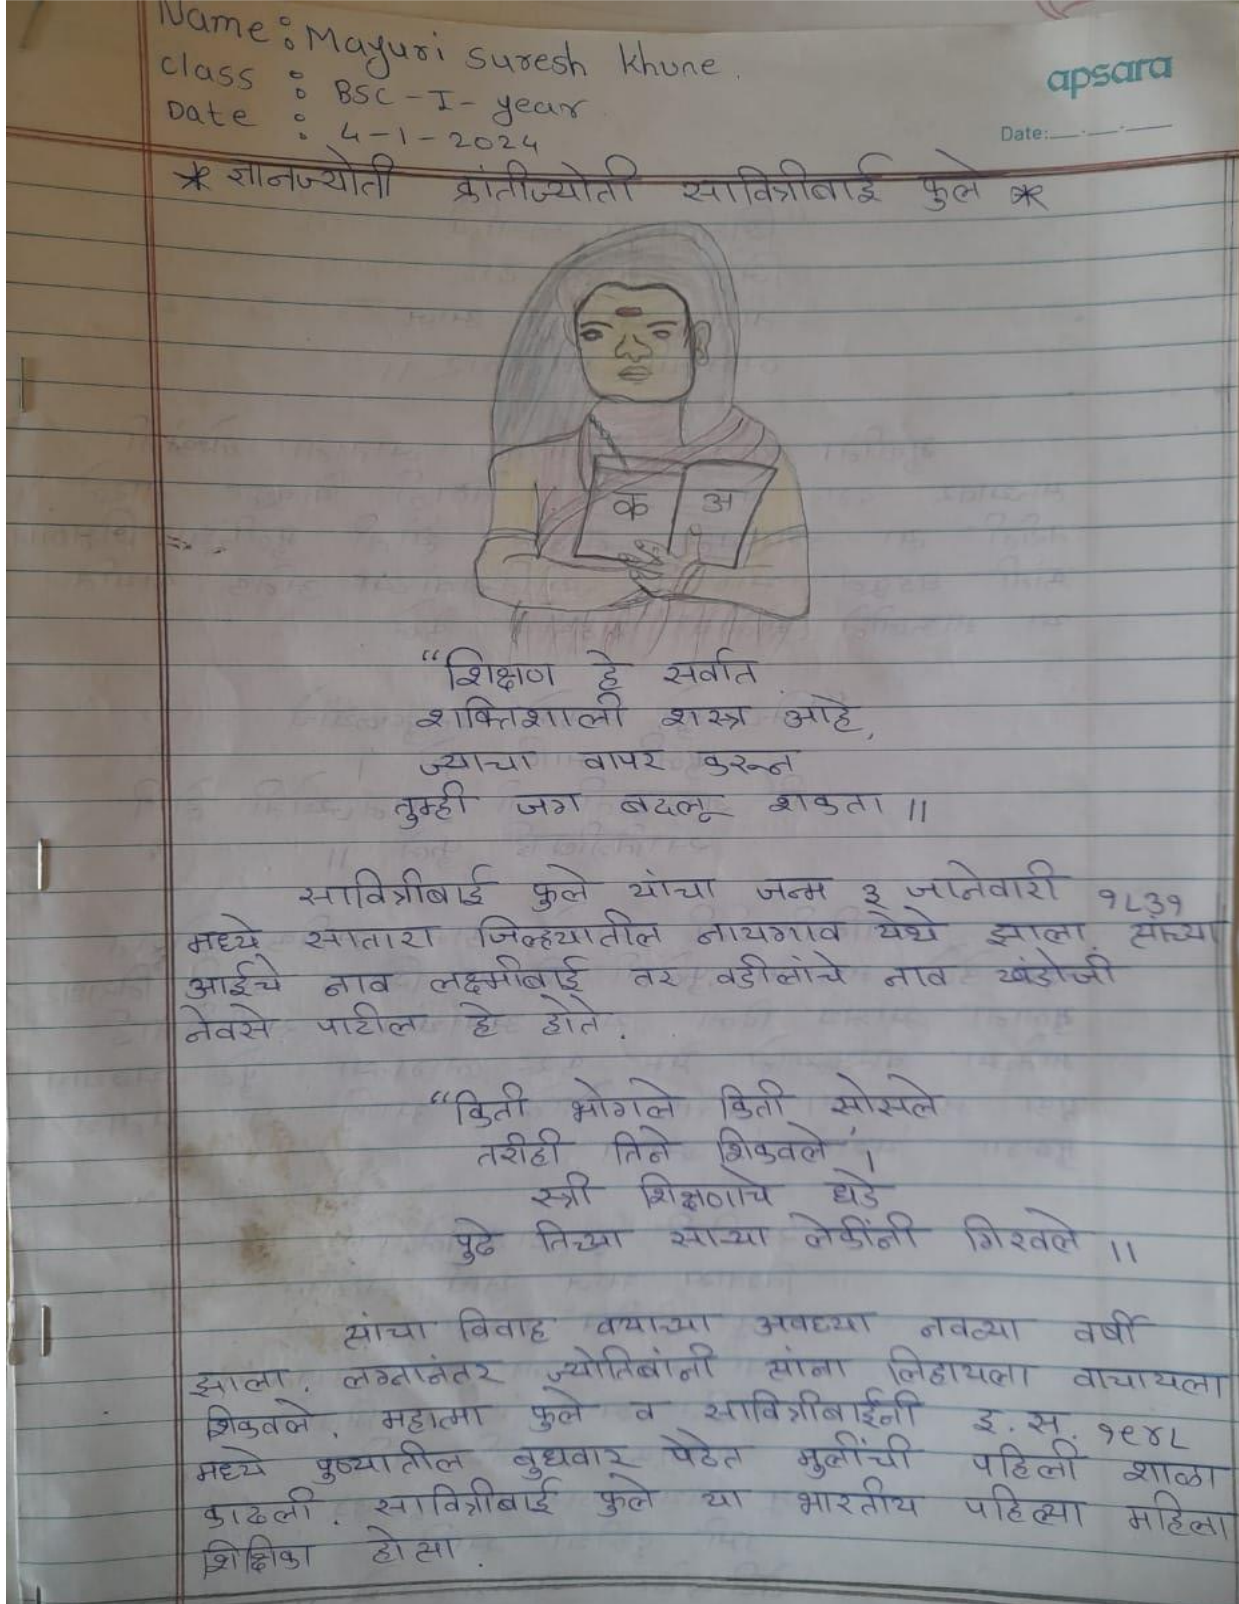 Name : Mayuri Suresh Khune.
apsara
class : BSC - I - year
Date : 4-1-2024
Date:
* ज्ञानज्योती क्रांतीज्योती सावित्रीबाई फुले *
क अ
“शिक्षण हे सर्वात
शक्तिशाली शस्त्र आहे,
ज्याचा वापर करून
तुम्ही जग बदलू शकता ॥
सावित्रीबाई फुले यांचा जन्म ३ जानेवारी १८३१
मध्ये सातारा जिल्ह्यातील नायगाव येथे झाला. त्यांच्या
आईचे नाव लक्ष्मीबाई तर वडीलांचे नाव खंडोजी
नेवसे पाटील हे होते.
“किती भोगले किती सोसले
तरीही तिने शिकवले ।
स्त्री शिक्षणाचे धडे
पुढे तिच्या साऱ्या लेकींनी गिरवले ॥
त्यांचा विवाह वयाच्या अवघ्या नवव्या वर्षी
झाला. लग्नानंतर ज्योतिबांनी त्यांना लिहायला वाचायला
शिकवले. महात्मा फुले व सावित्रीबाईनी इ.स. १९४८
मध्ये पुण्यातील बुधवार पेठेत मुलींची पहिली शाळा
काढली. सावित्रीबाई फुले या भारतीय पहिल्या महिला
शिक्षिका होत्या.